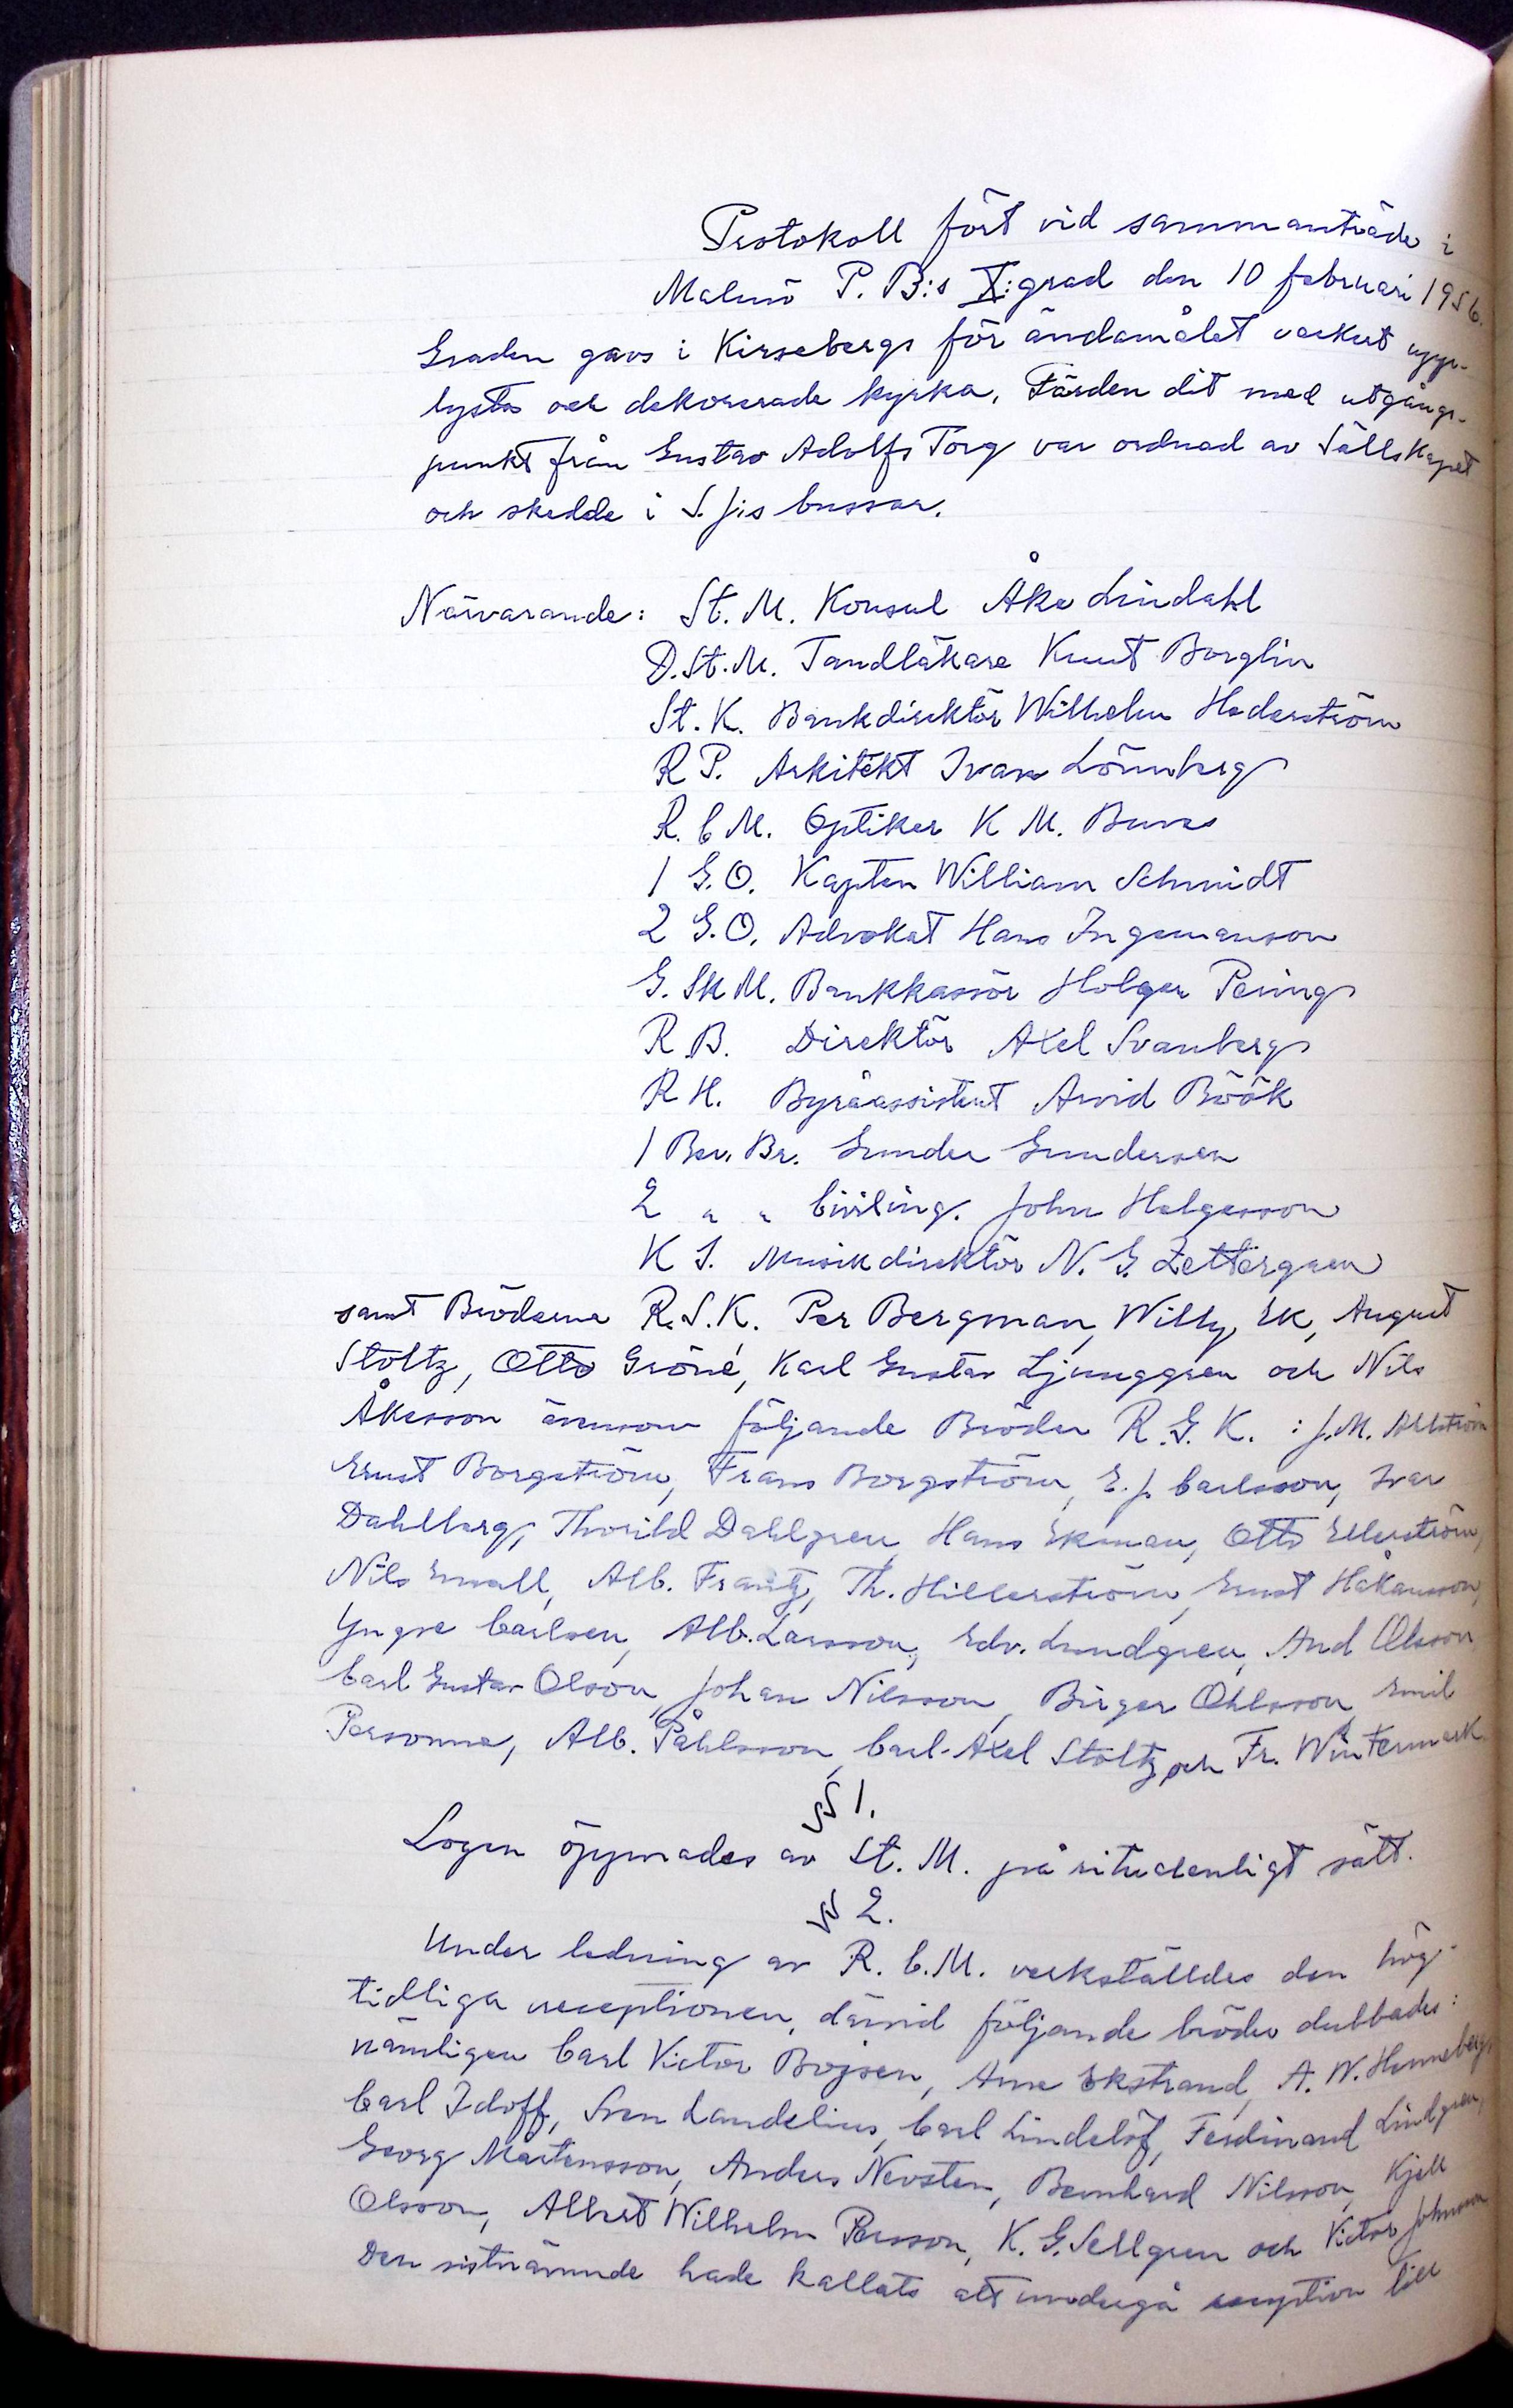 Protokoll fört vid sammanträde i
Malmö P. B:s X:grad den 10 februari 1956.
Graden gavs i Kirsebergs för ändamålet vackert upp-
lysta och dekorerade kyrka. Färden dit med utgångs-
punkt från Gustav Adolfs Torg var ordnad av Sällskapet
och skedde i S. J:s bussar.
Närvarande: St. M. Konsul Åke Lindahl
D. St. M. Tandläkare Knut Borglin
St. K. Bankdirektör Wilhelm Hederström
R P. Arkitekt Ivan Lönnberg
R. C M. Optiker K M. Buras
1 G. O. Kapten William Schmidt
2 G. O. Advokat Hans Ingemanson
G. Sk M. Bankkassör Holger Pering
R B. Direktör Axel Svanberg
R H. Byråassistent Arvid Böök
1 Bev. Br. Gunder Gundersen
2 " " Civiling. John Helgesson
K S. Musikdirektör N. G. Zettergren
samt Bröderna R. S. K. Per Bergman, Willy Ek, August
Stoltz, Otto Gröné, Karl Gustav Ljunggren och Nils
Åkesson ävensom följande Bröder R. G. K. : J. M. Ahlström
Ernst Borgström, Frans Borgström, E. J. Carlsson, Ivar
Dahlberg, Thorild Dahlgren, Hans Ekman, Otto Ellerström,
Nils Enwall, Alb. Frantz, Th. Hillerström, Ernst Håkansson,
Yngve Carlsen, Alb. Larsson, Edv. Lundgren, And Olsson
Carl Gustav Olson, Johan Nilsson, Birger Ohlsson, Emil
Personne, Alb. Påhlsson, Carl-Axel Stoltz och Fr. Wintermark
§ 1.
Logen öppnades av St. M. på ritualenligt sätt.
§ 2.
Under ledning av R. C. M. verkställdes den hög-
tidliga receptionen, därvid följande bröder dubbades:
nämligen Carl Victor Bojsen, Arne Ekstrand, A. W. Henneberg,
Carl Idoff, Sven Landelius, Carl Lindelöf, Ferdinand Lindgren,
Georg Mårtensson, Anders Nevsten, Bernhard Nilsson, Kjell
Olsson, Albert Wilhelm Persson, K. G. Sellgren och Victor Johnsson
Den sistnämnde hade kallats att undergå reception till